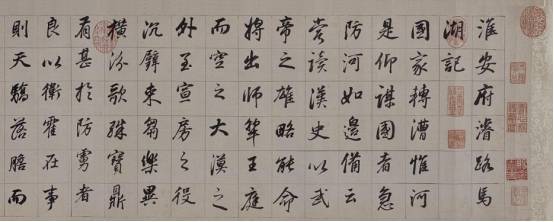 淮安府濬路馬
湖記
國家轉漕惟河
是仰謀國者急
防河如邊備云
嘗讀漢史以武
帝之雄略能命
將出師犂王庭
而空之大漠之
外至宣房之役
沉璧來芻樂異
橫汾歌殊寶鼎
有甚於防虜者
良以衛霍在事
則天驕落膽而